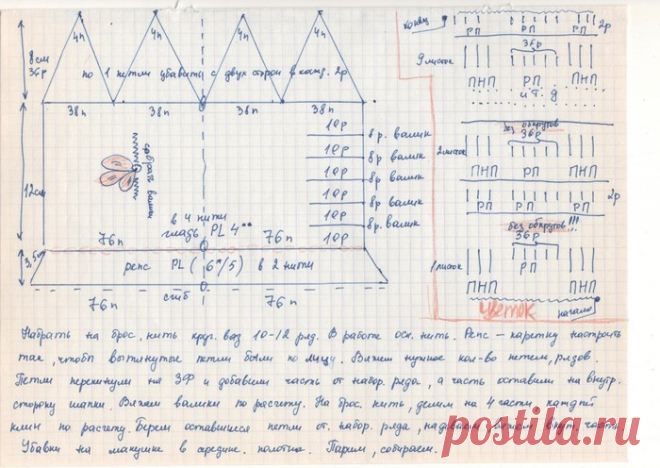 8 см
36р
4п 4п 4п 4п
по 1 петли убавить с двух сторон в кажд. 2р
38п 38п 38п 38п
12см
собрать валики
10р
8р. валик
10р
8р валик
10р
8р. валик
10р
8р. валик
10р
8р. валик
10р
в 4 нити
гладь PL 4°°
76п 76п
3,5см
репс PL ( 6°/5) в 2 нити
сгиб
76п 76п
конец
РП РП 2р
9 листок
36р
ПНП РП ПНП
и т. д
без обкрутов
36р
2 листок
ПНП РП ПНП
РП РП РП 2р
без обкрутов!!!
36р
1 листок
РП
ПНП ПНП
начало
цветок
Набрать на брос. нить круг. вяз 10-12 ряд. В работе осн. нить. Репс – каретку настроить
так, чтобы вытянутые петли были по лицу. Вяжем нужное кол-во петель, рядов.
Петли перекинули на ЗФ и добавили часть от набор. ряда, а часть оставили на внутр.
сторону шапки. Вяжем валики по расчету. На брос. нить, делим на 4 части, каждый
клин по расчету. Берем оставшиеся петли от. набор. ряда, надеваем вяжем внут. часть
Убавки на макушке в середине полотна. Парим, собираем.
postila.ru